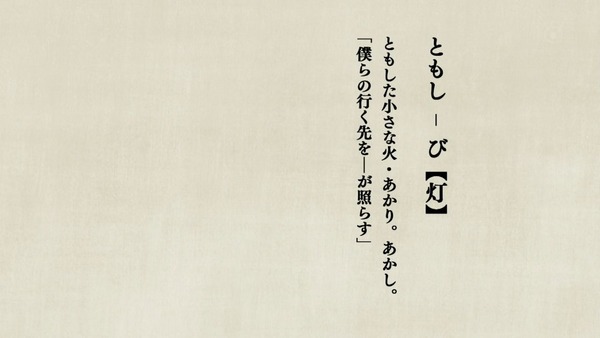 ともし－び【灯】
ともした小さな火・あかり。あかし。
「僕らの行く先を―が照らす」